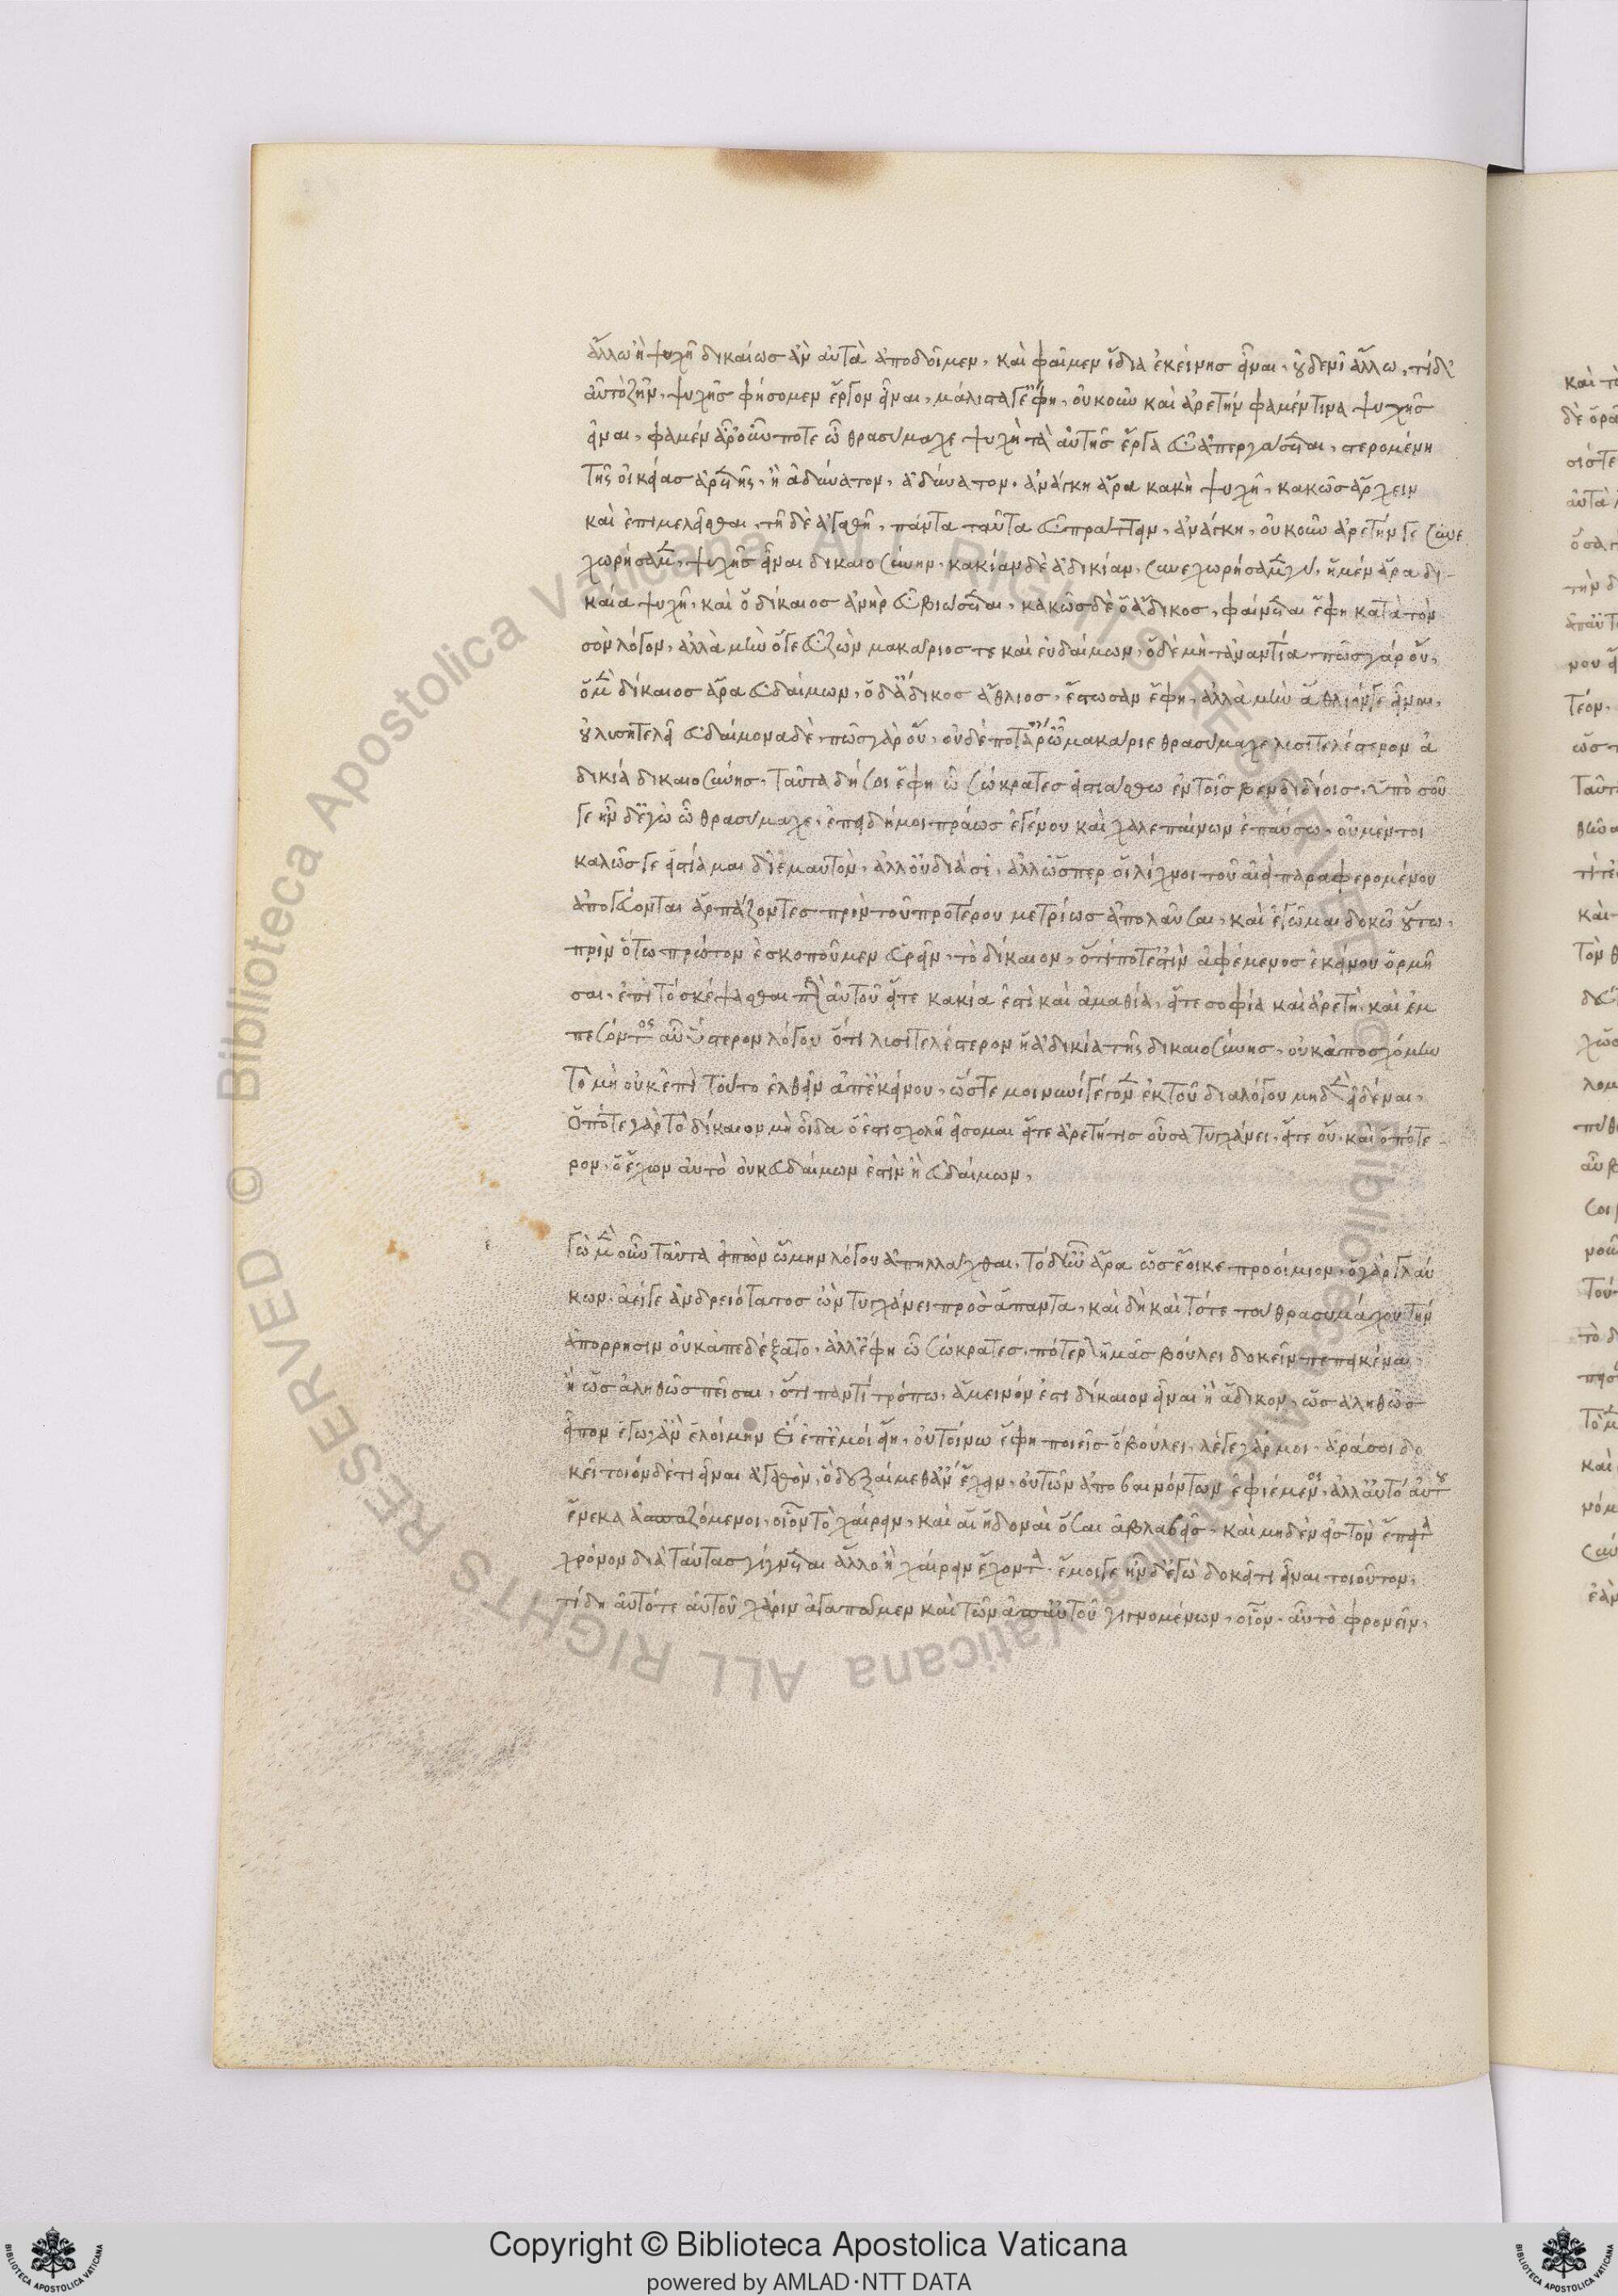 ἄλλω ἢ ψυχῆ δικαίωσ ἂν αὐτὰ ἀποδοῖμεν, καὶ φαῖμεν ἴδια ἐκείνησ εἶναι, οὐδενὶ ἄλλω, τί δὲ
αὖ τὸ ζῆν, ψυχῆσ φήσομεν ἔργον εἶναι, μάλιστά γ' ἔφη, οὐκοῦν καὶ ἀρετήν φαμέν τινα ψυχῆσ
εἶναι, φαμέν ἆρ' οὖν ποτε ὦ θρασύμαχε ψυχὴ τὰ αὑτῆσ ἔργα εὖ ἀπεργάσεται, στερομένη
τῆς οἰκείασ ἀρετῆς, ἢ ἀδύνατον, ἀδύνατον. ἀνάγκη ἄρα κακῆ ψυχῆ, κακῶσ ἄρχειν
καὶ ἐπιμελεῖσθαι, τῆ δὲ ἀγαθῆ, πάντα ταῦτα εὖ πράττειν, ἀνάγκη, οὐκοῦν ἀρετήν γε συνε
χωρήσαμεν, ψυχῆσ εἶναι δικαιοσύνην, κακίαν δὲ ἀδικίαν, συνεχωρήσαμεν γὰρ, ἡ μὲν ἄρα δι-
καία ψυχὴ, καὶ ὁ δίκαιοσ ἀνὴρ εὖ βιώσεται, κακῶσ δὲ ὁ ἄδικοσ, φαίνεται ἔφη κατὰ τὸν
σὸν λόγον, ἀλλὰ μὴν ὅ γε εὖ ζῶν μακάριοσ τε καὶ εὐδαίμων, ὁ δὲ μὴ τἀναντία πῶσ γὰρ οὔ,
ὁ μὲν δίκαιοσ ἄρα εὐδαίμων, ὁ δ' ἄδικοσ ἄθλιοσ, ἔστωσαν ἔφη, ἀλλὰ μὴν ἄθλιόν γε εἶναι,
οὐ λυσιτελεῖ εὐδαίμονα δὲ, πῶσ γὰρ οὔ, οὐδέποτ' ἄρ' ὦ μακάριε θρασύμαχε λυσιτελέστερον ἀ
δικία δικαιοσύνησ, ταῦτα δή σοι ἔφη ὦ σώκρατεσ εἱστιάσθω ἐν τοῖσ βενδιδίοισ, ὑπὸ σοῦ
γε ἦν δ' ἐγὼ ὦ θρασύμαχε, ἐπειδή μοι πρᾶωσ ἐγένου καὶ χαλεπαίνων ἐπαύσω, οὐ μέντοι
καλῶσ γε εἱστίαμαι δι' ἐμαυτὸν, ἀλλ' οὐ διὰ σὲ, ἀλλ' ὥσπερ οἱ λίχνοι τοῦ αἰεὶ παραφερομένου
ἀπογεύονται ἁρπάζοντεσ πρὶν τοῦ προτέρου μετρίωσ ἀπολαῦσαι, καὶ ἐγῶμαι δοκῶ οὕτω,
πρὶν ὅ τὸ πρῶτον ἐσκοποῦμεν εὑρεῖν, τὸ δίκαιον, ὅτι ποτ' ἐστὶν ἀφέμενοσ ἐκείνου ὁρμῆ
σαι, ἐπὶ τὸ σκέψασθαι περὶ αὐτοῦ εἴτε κακία ἐστὶ καὶ ἀμαθία, εἴτε σοφία καὶ ἀρετὴ, καὶ ἐμ
πεσόντος αὖ ὕστερον λόγου ὅτι λυσιτελέστερον ἡ ἀδικία τῆς δικαιοσύνησ, οὐκ ἀπεσχόμην
τὸ μὴ οὐκ ἐπὶ τοῦτο ἐλθεῖν ἀπ' ἐκείνου, ὥστε μοι νυνὶ γέγονεν ἐκ τοῦ διαλόγου μηδὲν εἰδέναι,
ὁπότε γὰρ τὸ δίκαιον μὴ οἶδα ὅ ἐστι σχολῆ εἴσομαι εἴτε ἀρετή τισ οὖσα τυγχάνει, εἴτε οὔ, καὶ ὁπότε
ρον, ὁ ἔχων αὐτὸ οὐκ εὐδαίμων ἐστὶν ἢ εὐδαίμων,
γὼ μὲν οὖν ταῦτα εἰπὼν ὤμην λόγου ἀπηλλάχθαι, τὸ δ' ἦν ἄρα ὡσ ἔοικε προοίμιον, ὁ γὰρ γλαύ
κων, ἀεί γε ἀνδρειότατοσ ὢν τυγχάνει πρὸσ ἅπαντα, καὶ δὴ καὶ τότε τοῦ θρασυμάχου τὴν
ἀπόρρησιν οὐκ ἀπεδέξατο, ἀλλ' ἔφη ὦ σώκρατεσ, πότερον ἡμᾶσ βούλει δοκεῖν πεπεικέναι,
ἢ ὡσ ἀληθῶσ πεῖσαι, ὅτι παντὶ τρόπω, ἄμεινόν ἐστι δίκαιον εἶναι ἢ ἄδικον, ὡσ ἀληθῶσ
εἶπον ἔγωγ' ἂν ἑλοίμην εἰ ἐπ' ἐμοὶ εἴη, οὐ τοίνυν ἔφη ποιεῖσ ὃ βούλει, λέγε γάρ μοι, ἆρά σοι δο
κεῖ τοιόνδε τι εἶναι ἀγαθὸν, ὃ δεξαίμεθ' ἂν ἔχειν, οὐ τῶν ἀποβαινόντων ἐφιέμενοι, ἀλλ' αὐτὸ αὑτοῦ
ἕνεκα ἀσπαζόμενοι, οἷον τὸ χαίρειν, καὶ αἱ ἡδοναὶ ὅσαι ἀβλαβεῖσ, καὶ μηδὲν εἰσ τὸν ἔπειτα
χρόνον διὰ ταύτασ γίγνεται ἄλλο ἢ χαίρειν ἔχοντα. ἔμοιγε ἦν δ' ἐγὼ δοκεῖ τι εἶναι τοιοῦτον,
τί δὴ αὐτό τε αὑτοῦ χάριν ἀγαπῶμεν καὶ τῶν ἀπ' αὐτοῦ γιγνομένων, οἷον, αὖ τὸ φρονεῖν,
Copyright © Biblioteca Apostolica Vaticana
powered by AMLAD·NTT DATA